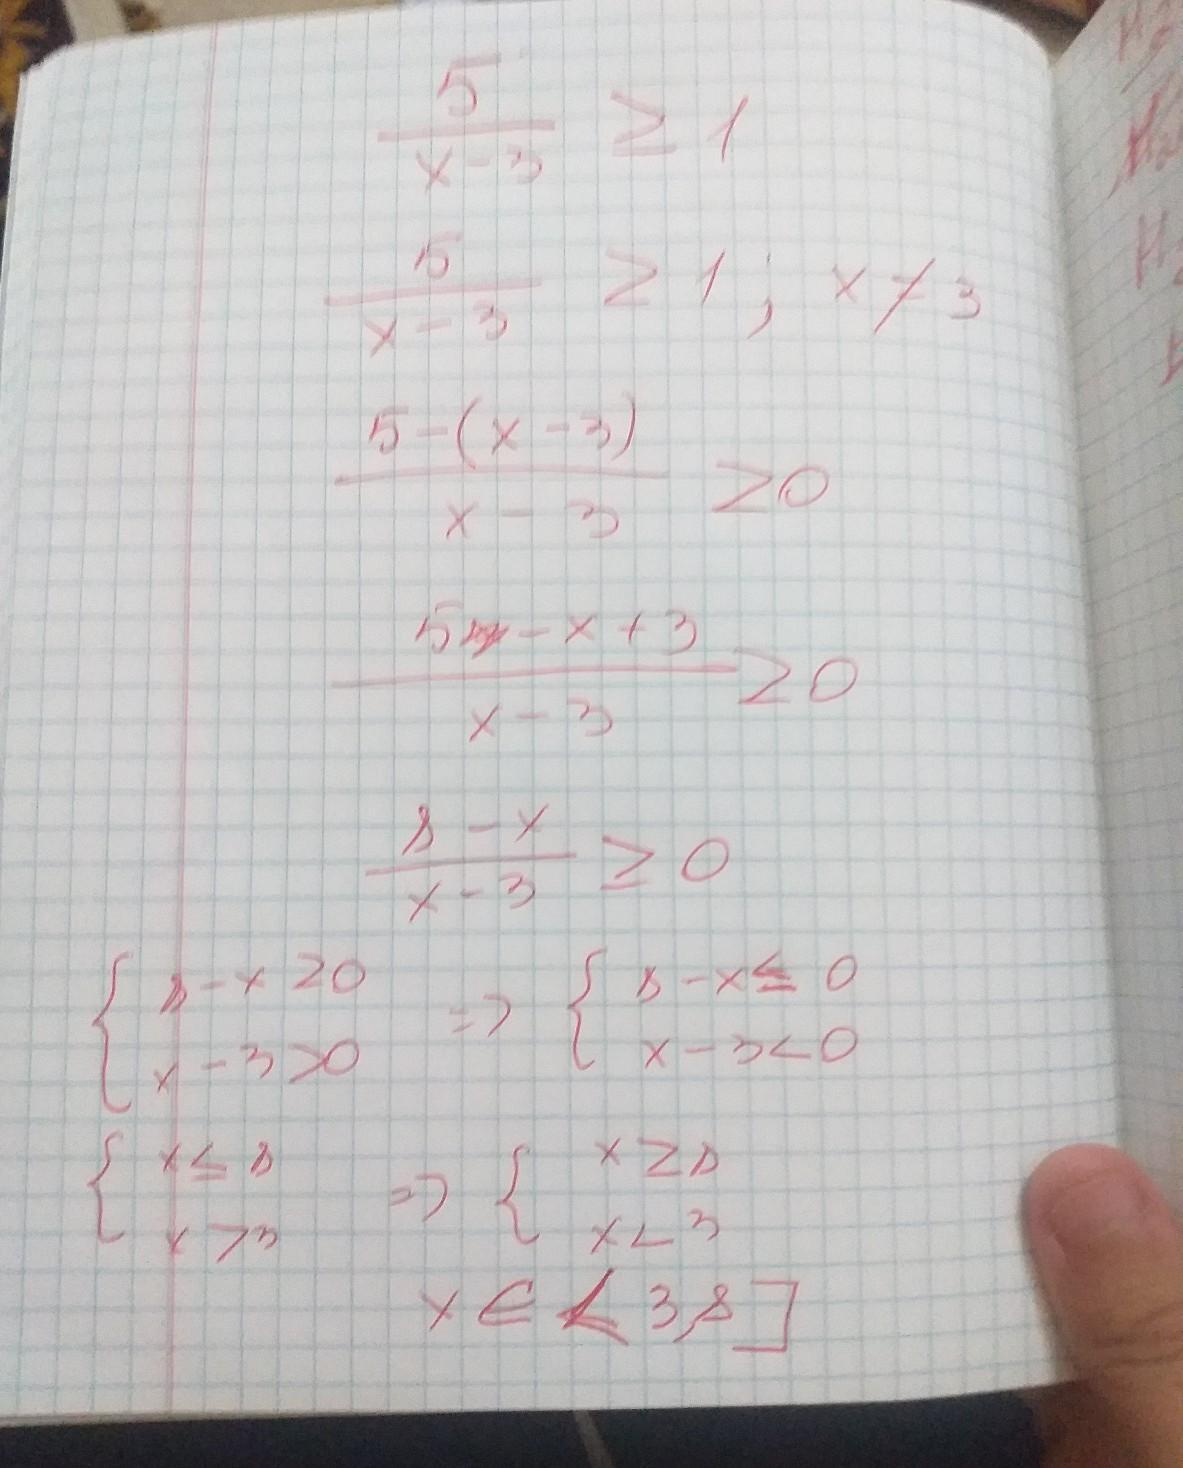 5/(x-3) ≥ 1
5/(x-3) ≥ 1 ; x ≠ 3
(5-(x-3))/(x-3) ≥ 0
(5-x+3)/(x-3) ≥ 0
(8-x)/(x-3) ≥ 0
{ 8-x ≥ 0 => { 8-x ≤ 0
x-3 > 0 x-3 < 0
{ x ≤ 8 => { x ≥ 8
x > 3 x < 3
x ∈ < 3,8]